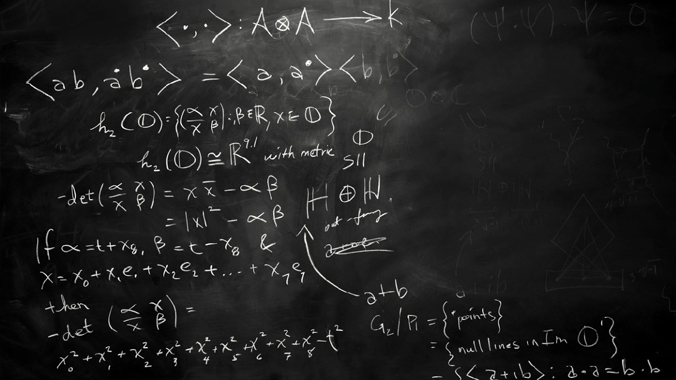 <·,·> : A ⊗ A ⟶ k
(Ψ·Ψ) Ψ = 0
<ab, a•b•> = <a, a•><b, b>
h₂(𝕆) = {(α x / x̄ β) : β ∈ ℝ, x ∈ 𝕆}
h₂(𝕆) ≅ ℝ^{9,1} with metric
𝕆
SII
ℍ ⊕ ℍ
-det(α x / x̄ β) = x x̄ - αβ
= |x|² - αβ
If α = t + x₈, β = t - x₈ &
x = x₀ + x₁e₁ + x₂e₂ + ... + x₇e₇
then
-det (α x / x̄ β) =
x₀² + x₁² + x₂² + x₃² + x₄² + x₅² + x₆² + x₇² + x₈² - t²
a+b
G₂/P₁ = {"points}
= {null lines in Im 𝕆'}
= {<a+ib> : a·a = b·b